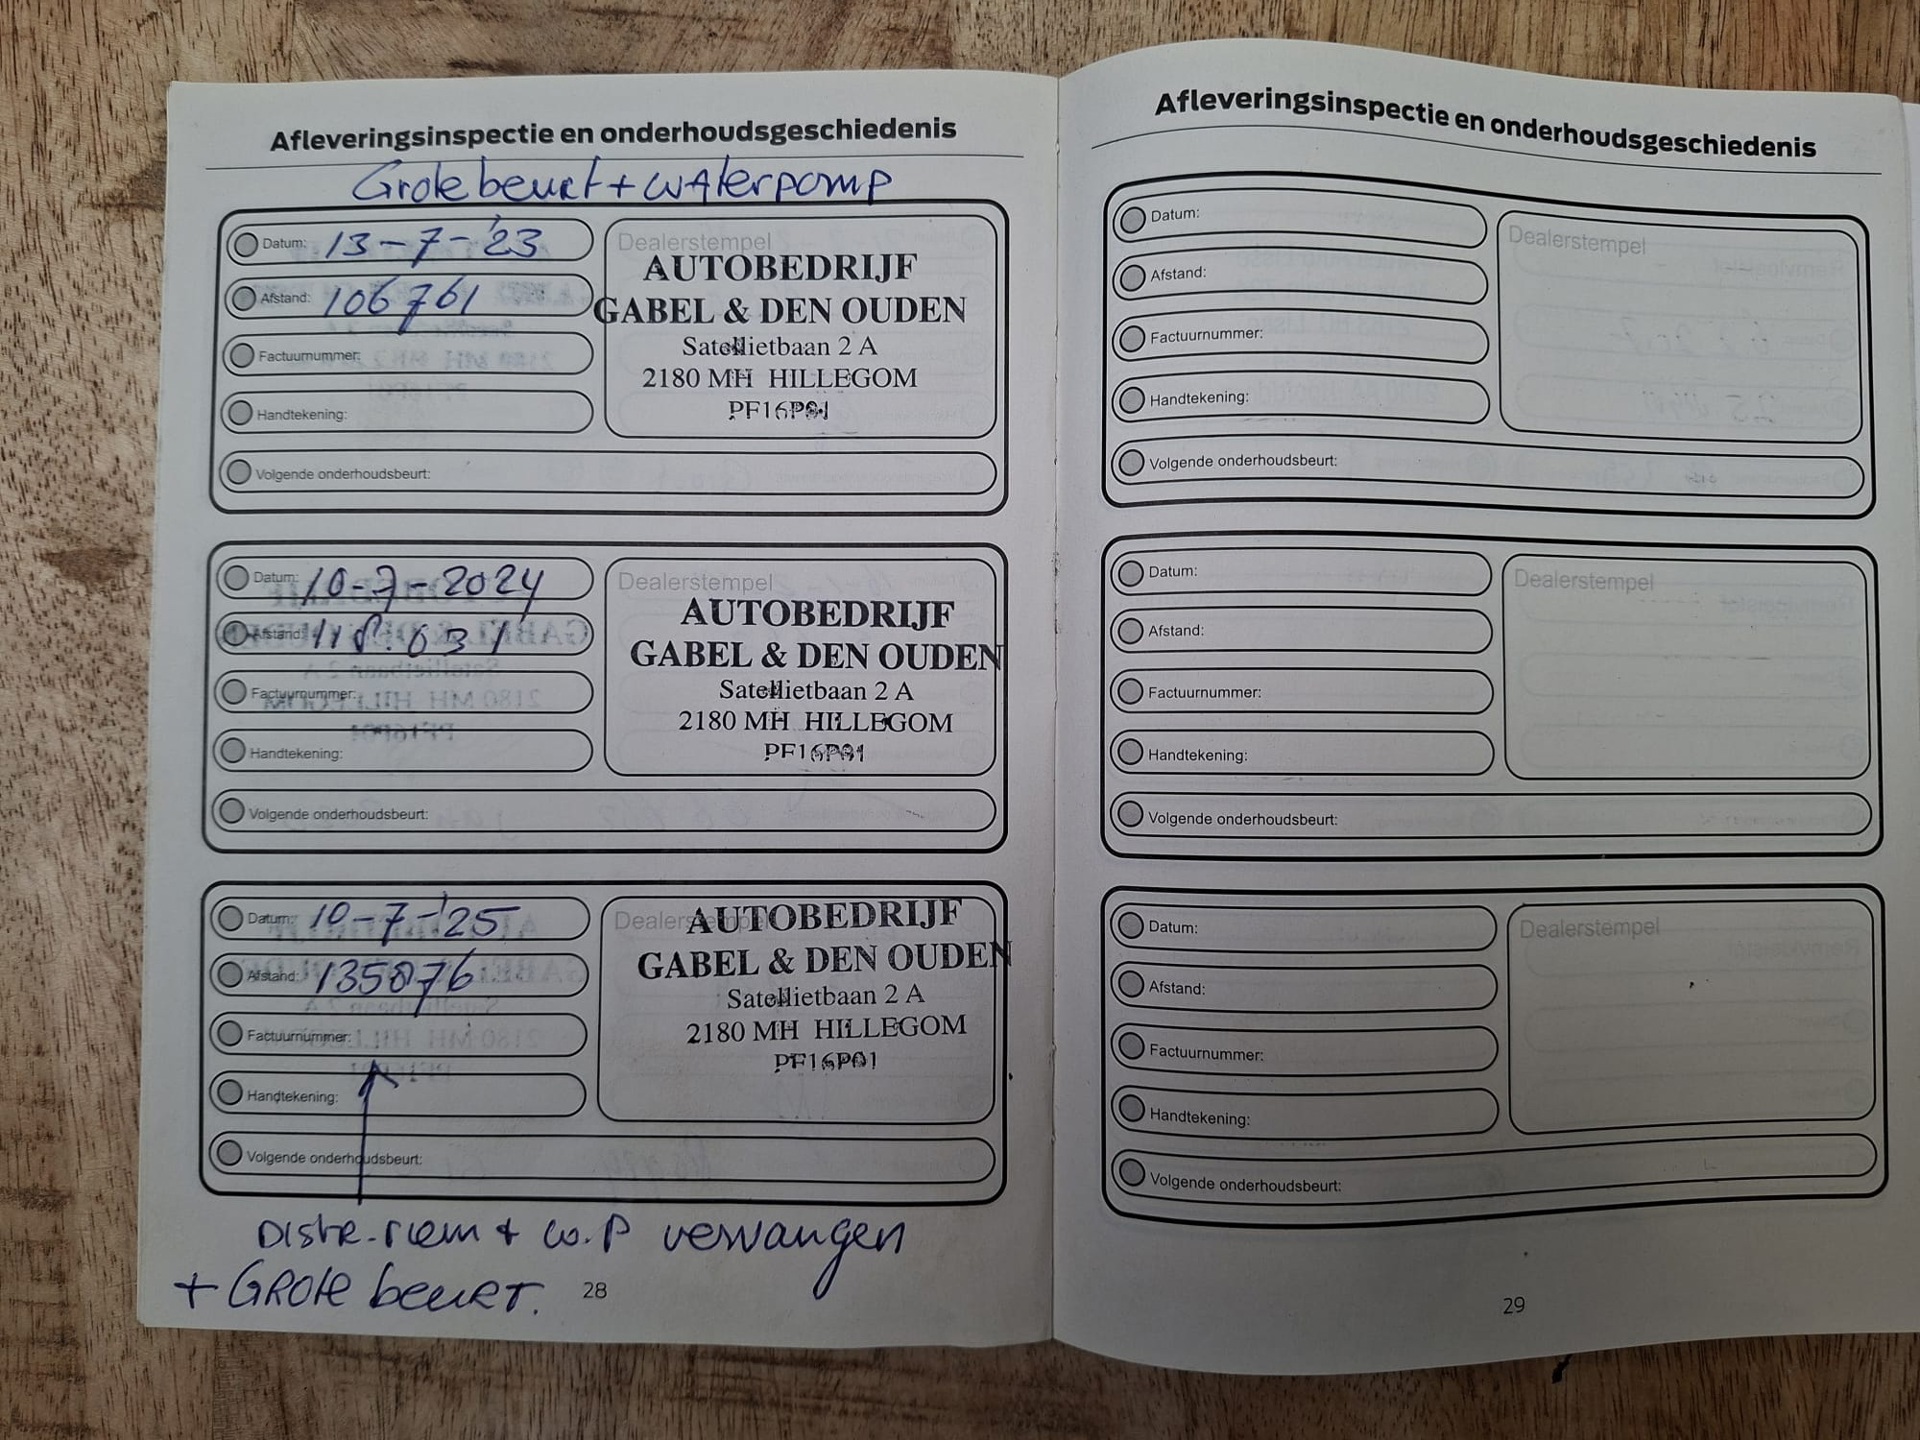 Afleveringsinspectie en onderhoudsgeschiedenis
Grote beurt + waterpomp
Datum: 13-7-'23
Afstand: 106761
Factuurnummer:
Handtekening:
Volgende onderhoudsbeurt:
Dealerstempel
AUTOBEDRIJF
GABEL & DEN OUDEN
Satellietbaan 2 A
2180 MH HILLEGOM
PF16P01
Datum: 10-7-2024
Afstand: 118.031
Factuurnummer:
Handtekening:
Volgende onderhoudsbeurt:
Dealerstempel
AUTOBEDRIJF
GABEL & DEN OUDEN
Satellietbaan 2 A
2180 MH HILLEGOM
PF16P01
Datum: 10-7-'25
Afstand: 135076
Factuurnummer:
Handtekening:
Volgende onderhoudsbeurt:
Dealerstempel
AUTOBEDRIJF
GABEL & DEN OUDEN
Satellietbaan 2 A
2180 MH HILLEGOM
PF16P01
Distr.riem + w.P vervangen
+ Grote beurt.
28
Afleveringsinspectie en onderhoudsgeschiedenis
Datum:
Afstand:
Factuurnummer:
Handtekening:
Volgende onderhoudsbeurt:
Dealerstempel
Datum:
Afstand:
Factuurnummer:
Handtekening:
Volgende onderhoudsbeurt:
Dealerstempel
Datum:
Afstand:
Factuurnummer:
Handtekening:
Volgende onderhoudsbeurt:
Dealerstempel
29